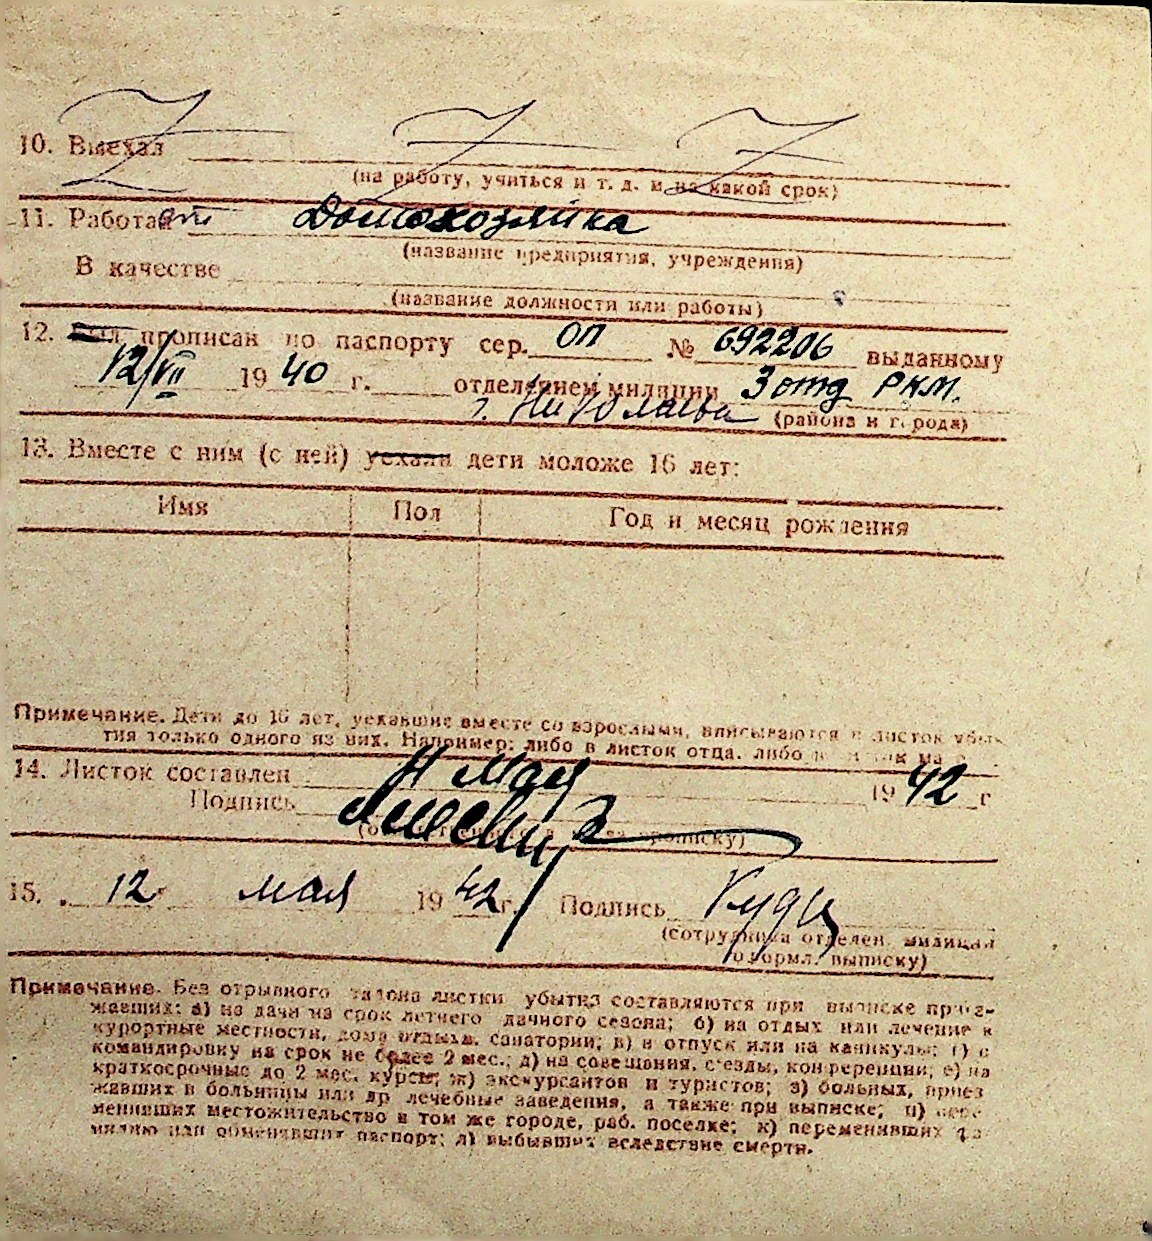 10. Выехал
(на работу, учиться и т. д. и на какой срок)
11. Работает Домохозяйка
(название предприятия, учреждения)
В качестве
(название должности или работы)
12. Был прописан по паспорту сер. ОП № 692206 выданному
12/VII 1940 г. отделением милиции 3 отд РКМ.
г. Николаева (района и города)
13. Вместе с ним (с ней) уехали дети моложе 16 лет:
Имя Пол Год и месяц рождения
Примечание. Дети до 16 лет, уехавшие вместе со взрослыми, вписываются в листок убы-
тия только одного из них. Например: либо в листок отца, либо
14. Листок составлен мая 1942 г
Подпись
прописку)
15. 12 мая 1942 г. Подпись
(сотрудника отделен. милиции
оформл. выписку)
Примечание. Без отрывного талона листки убытия составляются при выписке приез-
жавших: а) на дачи на срок летнего дачного сезона; б) на отдых или лечение в
курортные местности, дома отдыха, санатории; в) в отпуск или на каникулы; г) в
командировку на срок не более 2 мес.; д) на совещания, с'езды, конференции; е) на
краткосрочные до 2 мес. курсы; ж) экскурсантов и туристов; з) больных, приез
жавших в больницы или др лечебные заведения, а также при выписке; и) пере-
менивших местожительство в том же городе, раб. поселке; к) переменивших фа-
милию или обменявших паспорт; л) выбывших вследствие смерти.